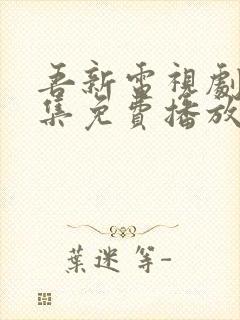 吾新雷視劇
集免費播放
葉迷等-